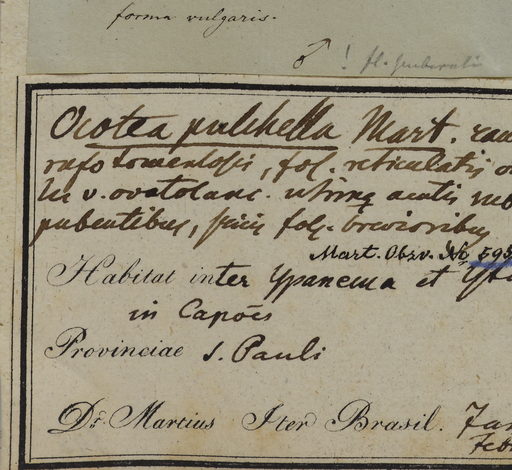 forma vulgaris.
♂ ! fl.
Ocotea pulchella Mart.
rufo tomentosis, fol. reticulatis
v. ovatolanc. utrinq acutis
pubentibus, foly. brevioribus
Mart. Obzv. No 595
Habitat inter Ypanema et
in Capoës
Provinciae S. Pauli
Dr. Martius Iter Brasil. Jan
Feb